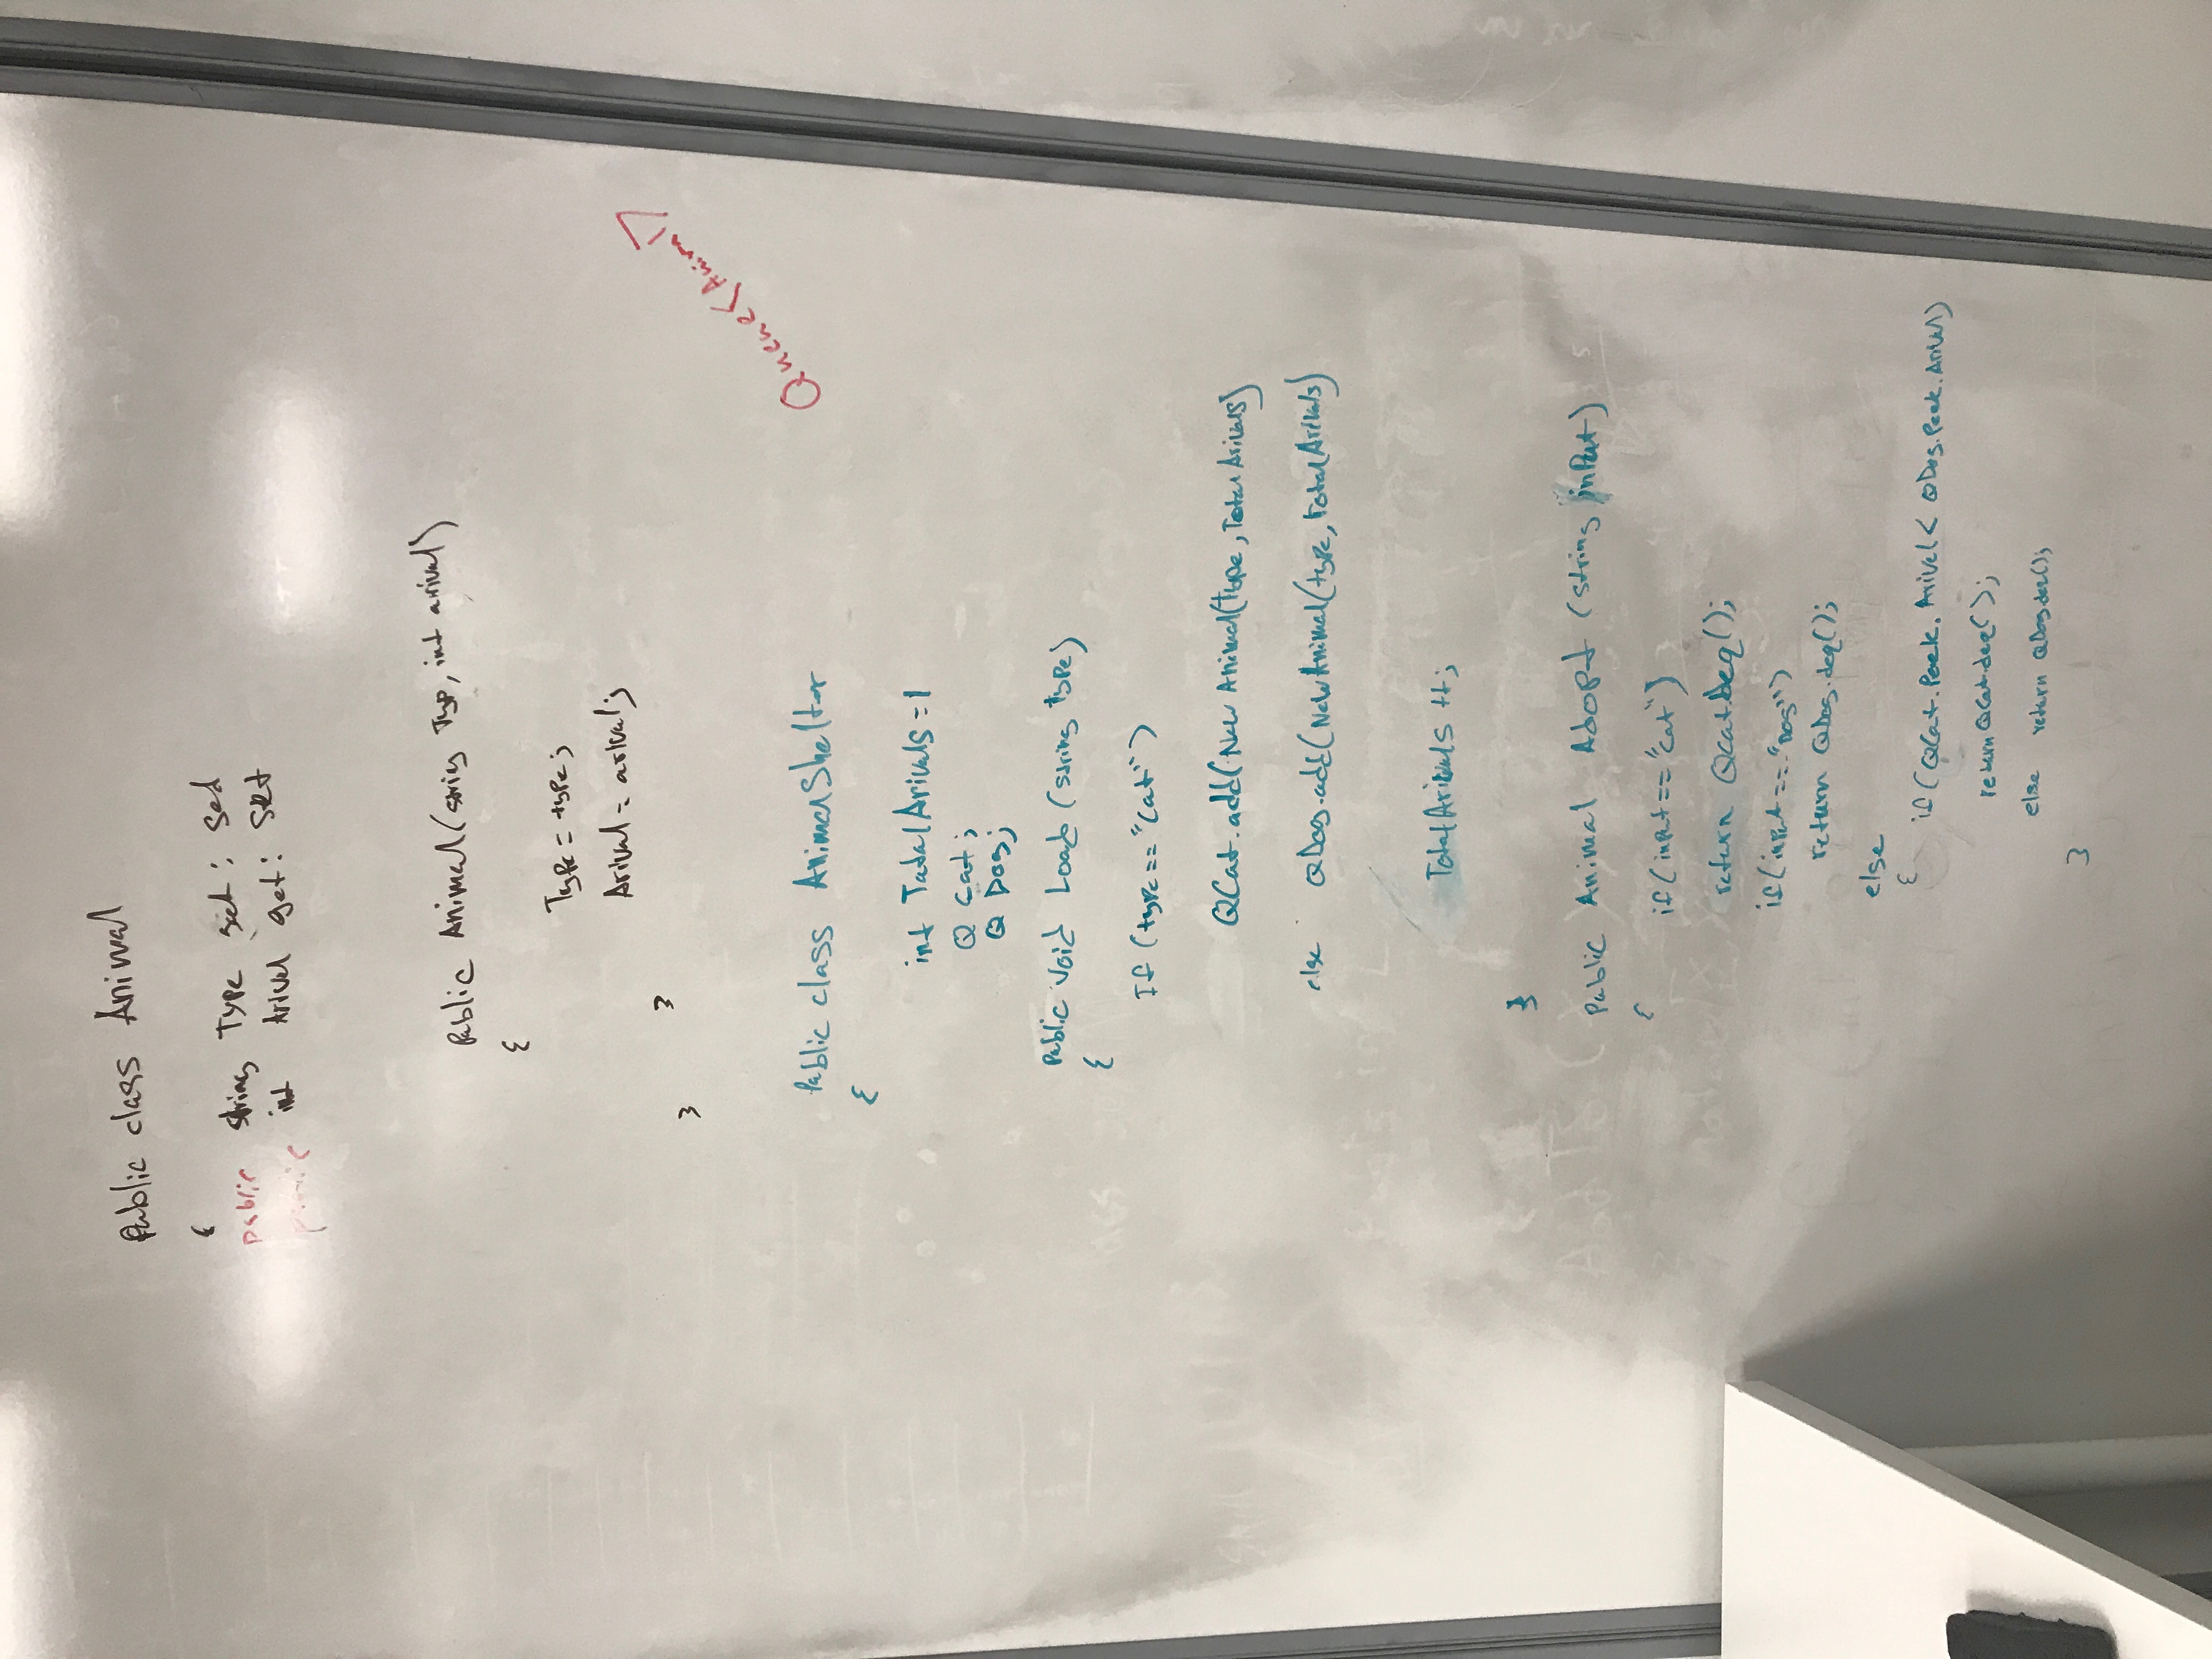 Public class Animal
{
public string Type get: Set
public int Arival get: Set
Public Animal(string Typ, int arival)
{
Type = type;
Arival = arival;
}
}
Queue<Animl>
Public class AnimalShelter
{
int TotalArivals = 1
Q Cat;
Q Dog;
Public void Load (string type)
{
If (type == "Cat")
QCat.add(New Animal(type, TotalArivals)
else QDog.add(New Animal(type, TotalArivals)
TotalArivals ++;
}
Public Animal Adopt (string inPut)
{
if (inPut == "Cat")
return Qcat.Deq();
if (inPut == "Dog")
return QDog.deq();
else
{
if (QCat.Peek.Arival < QDog.Peek.Arival)
return QCat.deq();
else return QDog.deq();
}